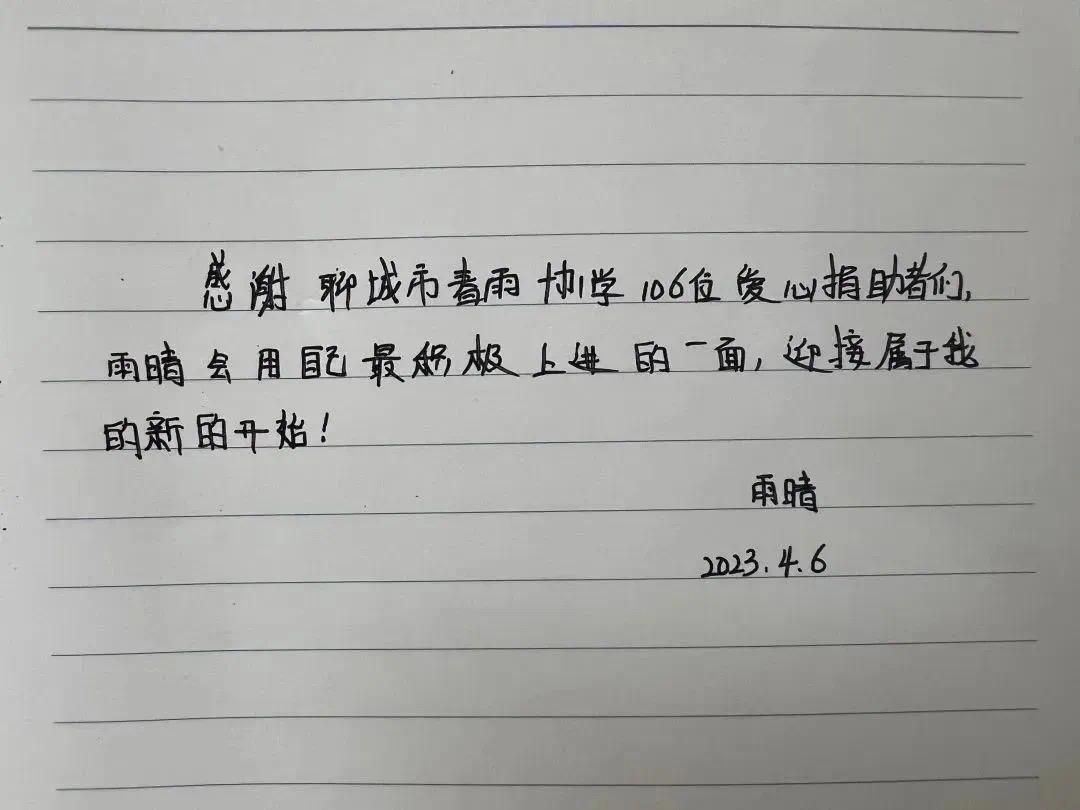 感谢聊城市春雨协学106位爱心捐助者们,
雨晴会用自己最积极上进的一面,迎接属于我
的新的开始!
雨晴
2023.4.6